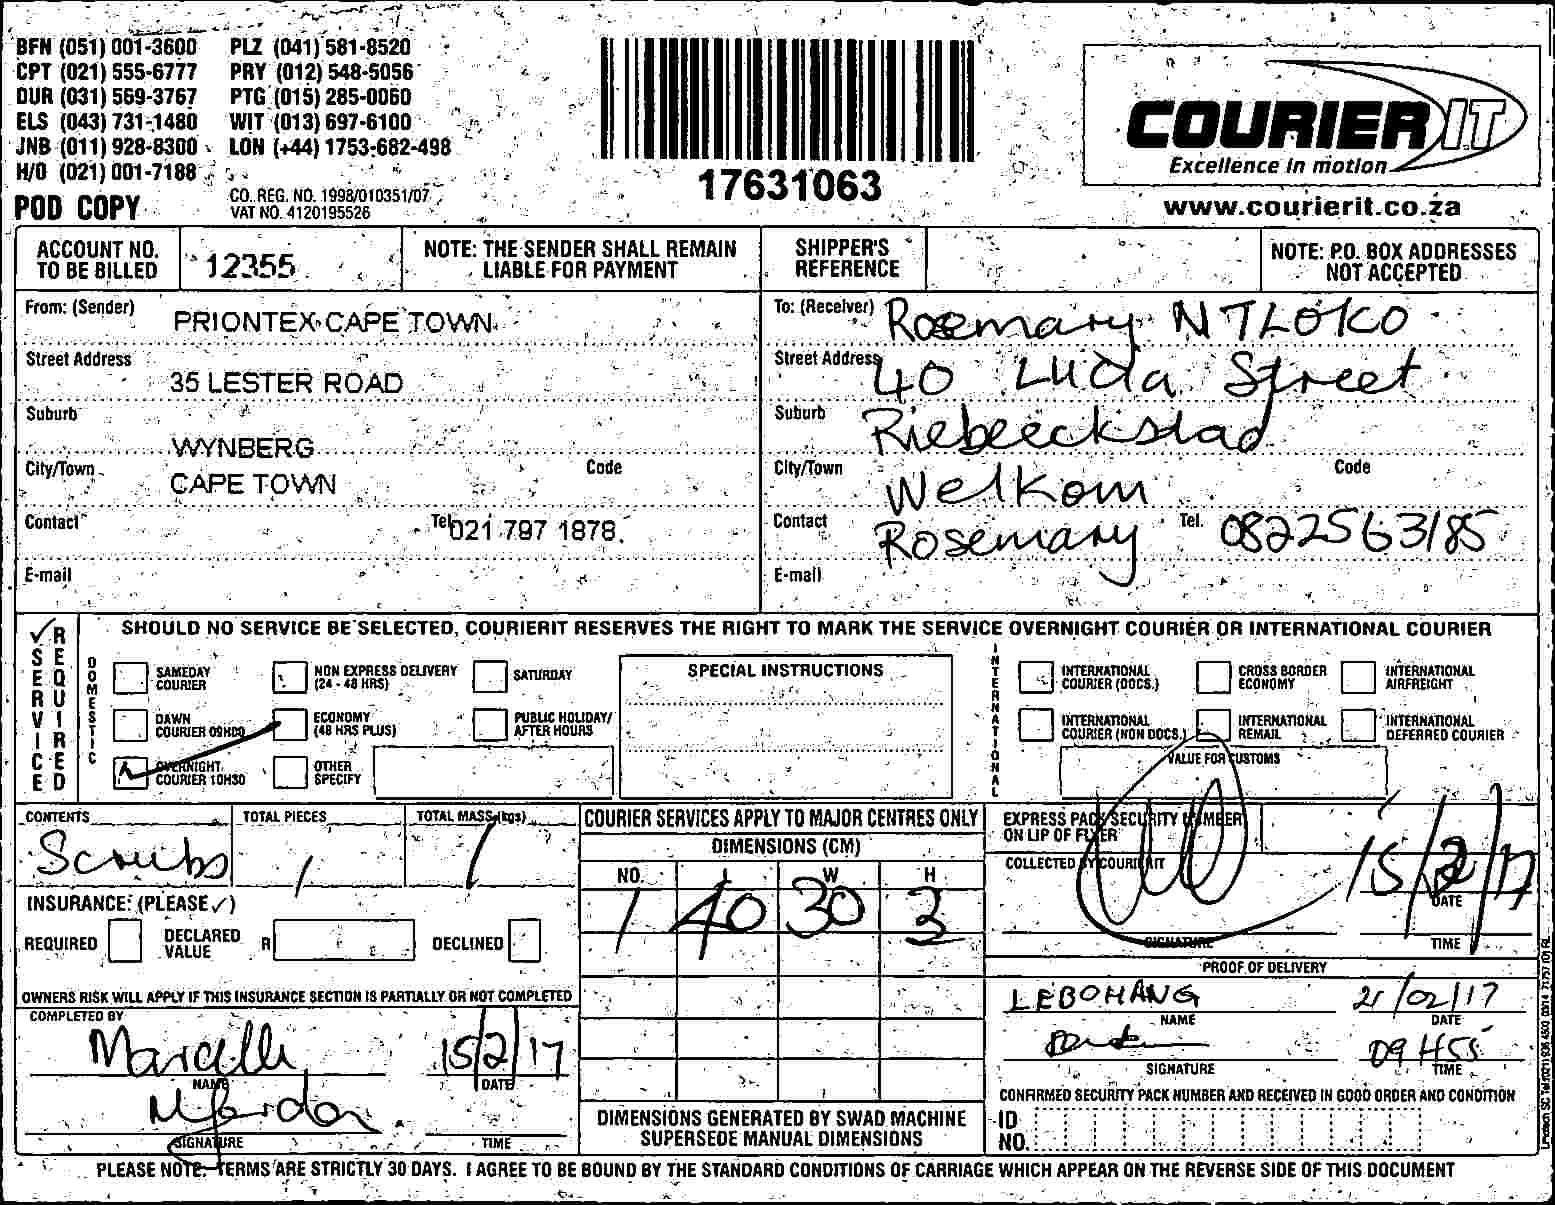 BFN (051) 001-3600 PLZ (041) 581-8520
CPT (021) 555-6777 PRY (012) 548-5056
DUR (031) 569-3767 PTG (015) 285-0060
ELS (043) 731-1480 WIT (013) 697-6100
JNB (011) 928-8300 LON (+44) 1753-682-498
H/O (021) 001-7188
POD COPY
CO. REG. NO. 1998/010351/07
VAT NO. 4120195526
17631063
COURIER IT
Excellence in motion
www.courierit.co.za
ACCOUNT NO. TO BE BILLED 12355
NOTE: THE SENDER SHALL REMAIN LIABLE FOR PAYMENT
SHIPPER'S REFERENCE
NOTE: P.O. BOX ADDRESSES NOT ACCEPTED
From: (Sender) PRIONTEX CAPE TOWN
Street Address 35 LESTER ROAD
Suburb WYNBERG
City/Town CAPE TOWN Code
Contact Tel 021 797 1878
E-mail
To: (Receiver) Rosemary NTLOKO
Street Address 40 Lucia Street
Suburb Riebeeckstad
City/Town Welkom Code
Contact Rosemary Tel. 0822563185
E-mail
SERVICE REQUIRED
SHOULD NO SERVICE BE SELECTED, COURIERIT RESERVES THE RIGHT TO MARK THE SERVICE OVERNIGHT COURIER OR INTERNATIONAL COURIER
DOMESTIC
SAMEDAY COURIER
NON EXPRESS DELIVERY (24 - 48 HRS)
SATURDAY
DAWN COURIER 09H00
ECONOMY (48 HRS PLUS)
PUBLIC HOLIDAY/ AFTER HOURS
OVERNIGHT COURIER 10H30
OTHER SPECIFY
SPECIAL INSTRUCTIONS
INTERNATIONAL
INTERNATIONAL COURIER (DOCS.)
CROSS BORDER ECONOMY
INTERNATIONAL AIRFREIGHT
INTERNATIONAL COURIER (NON DOCS.)
INTERNATIONAL REMAIL
INTERNATIONAL DEFERRED COURIER
VALUE FOR CUSTOMS
CONTENTS Scrubs
TOTAL PIECES 1
TOTAL MASS (kgs) 1
INSURANCE: (PLEASE ✓)
REQUIRED DECLARED VALUE R DECLINED
OWNERS RISK WILL APPLY IF THIS INSURANCE SECTION IS PARTIALLY OR NOT COMPLETED
COMPLETED BY
15/2/17
NAME DATE
SIGNATURE TIME
COURIER SERVICES APPLY TO MAJOR CENTRES ONLY
DIMENSIONS (CM)
NO. L W H
1 40 30 3
DIMENSIONS GENERATED BY SWAD MACHINE SUPERSEDE MANUAL DIMENSIONS
EXPRESS PACK SECURITY NUMBER ON LIP OF FLYER
COLLECTED BY COURIERIT
15/2/17
DATE
SIGNATURE TIME
PROOF OF DELIVERY
LEBOHANG 21/02/17
NAME DATE
09H55
SIGNATURE TIME
CONFIRMED SECURITY PACK NUMBER AND RECEIVED IN GOOD ORDER AND CONDITION
ID NO.
PLEASE NOTE: TERMS ARE STRICTLY 30 DAYS. I AGREE TO BE BOUND BY THE STANDARD CONDITIONS OF CARRIAGE WHICH APPEAR ON THE REVERSE SIDE OF THIS DOCUMENT